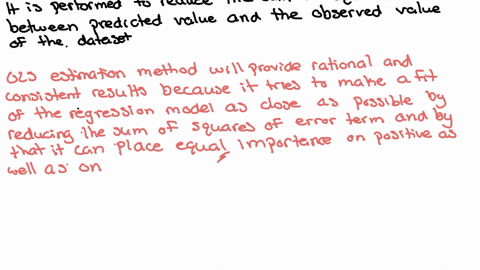 It is performed to reduce the sum
between predicted value and the observed value
of the. dataset
OLS estimation method will provide rational and
consistent results because it tries to make a fit
of the regression model as close as possible by
reducing the sum of squares of error term and by
that it can place equal importance on positive as
well as on